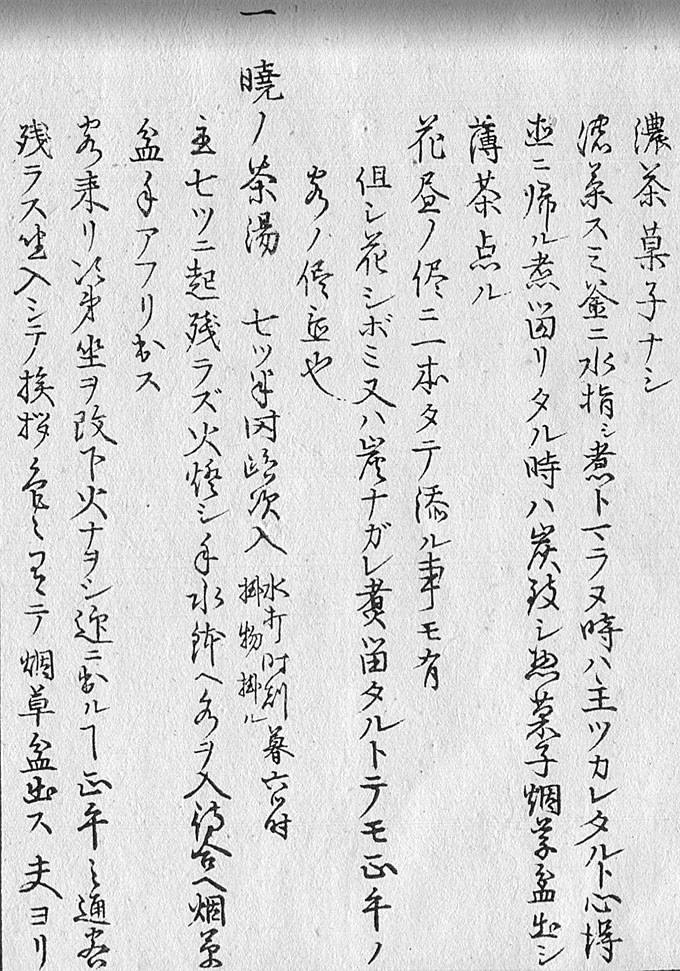 濃茶菓子ナシ
濃茶スミ釜ニ水指シ煮トマラヌ時ハ主ツカレタルト心得
直ニ帰ル煮留リタル時ハ炭致シ惣菓子烟草盆出シ
薄茶点ル
花昼ノ侭ニ一本タテ添ル事モ有
但シ花シボミ又ハ炭ナガレ煮留タルトテモ正午ノ
客ノ侭宜也
一 暁ノ茶湯 七ツ半時路次入 水打時刻暮六ツ時
掛物掛ル
主七ツニ起残ラズ火燈シ手水鉢ヘ水ヲ入待合ヘ烟草
盆手アフリ出ス
客来リ次第坐ヲ改下火ナヲシ迎ニ出ル
残ラス坐入シテノ挨拶 烟草盆出ス 夫ヨリ